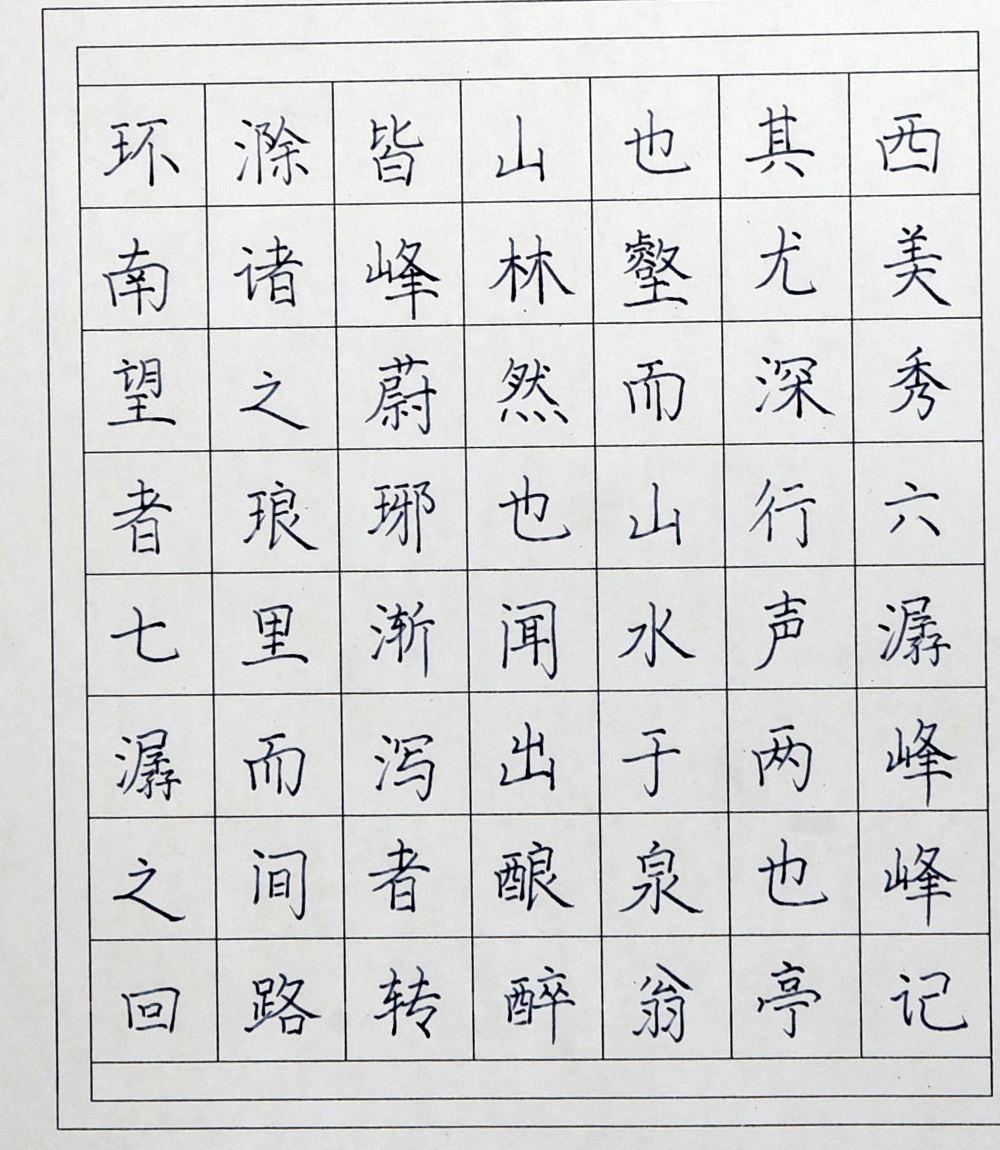 环滁皆山也其西
南诸峰林壑尤美
望之蔚然而深秀
者琅琊也山行六
七里渐闻水声潺
潺而泻出于两峰
之间者酿泉也峰
回路转醉翁亭记